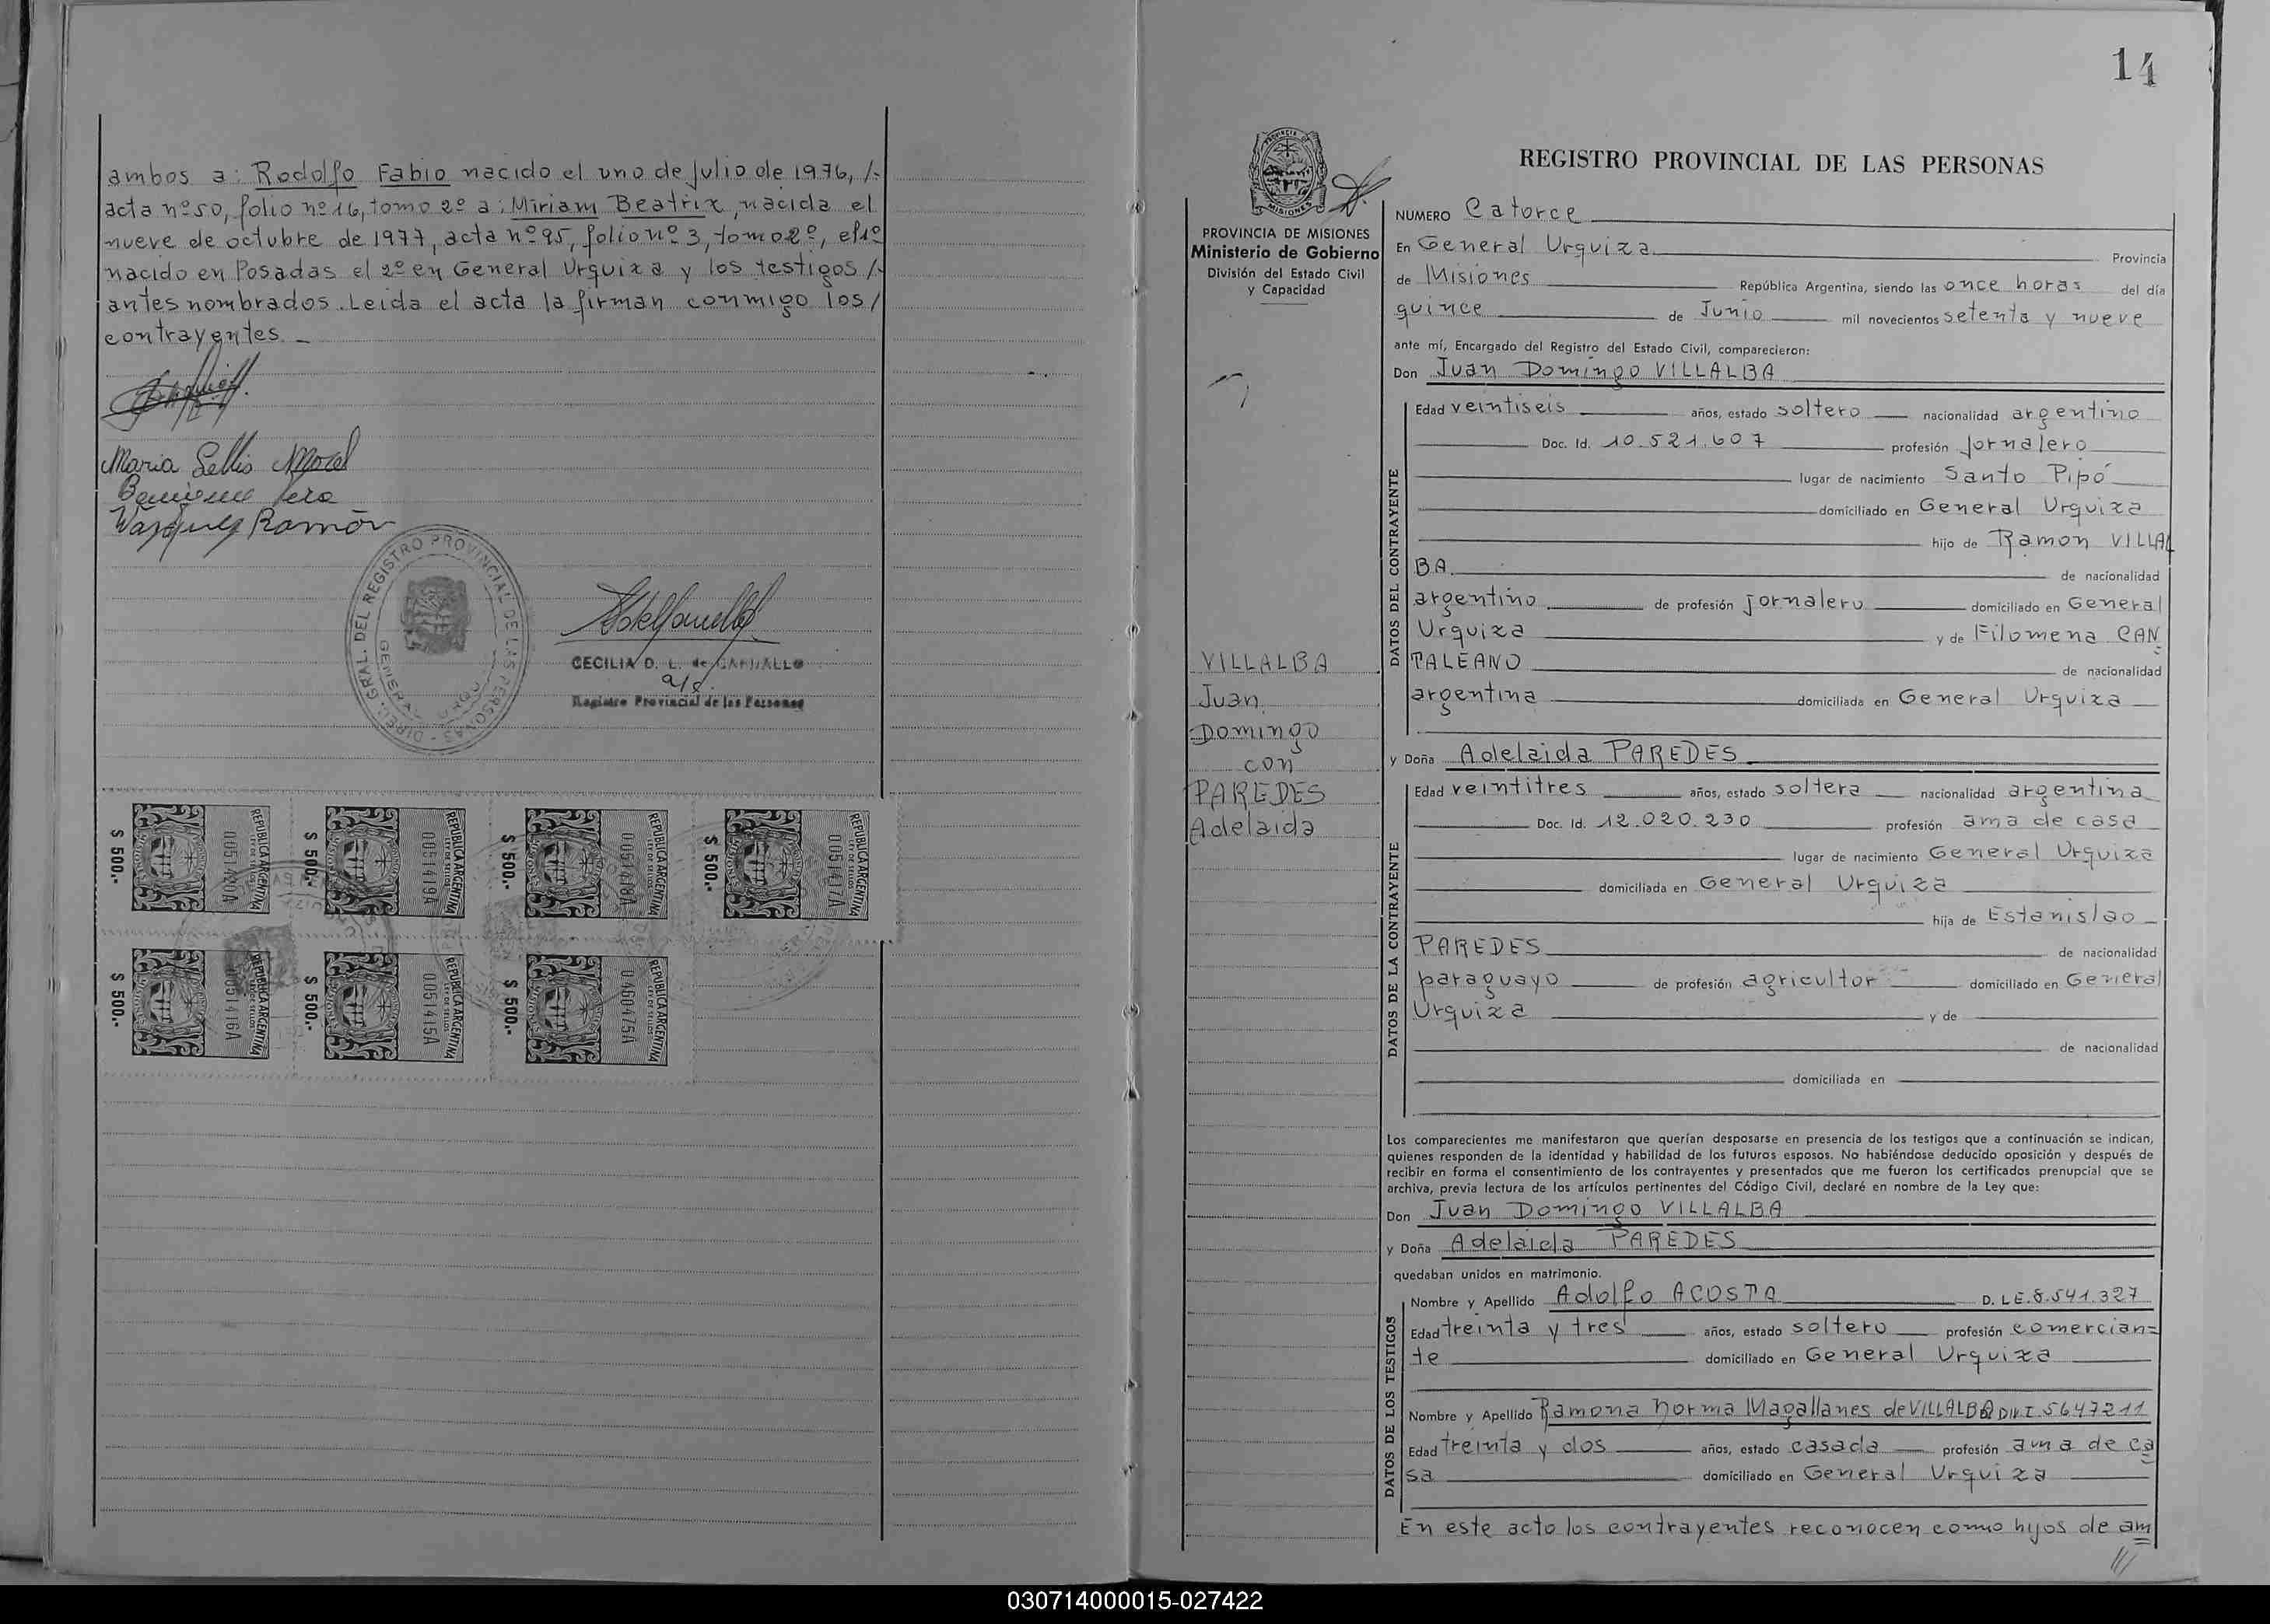 ambos a: Rodolfo Fabio nacido el uno de julio de 1976, /-
acta nº 50, folio nº 16, tomo 2º a: Miriam Beatriz, nacida el
nueve de octubre de 1977, acta nº 95, folio nº 3, tomo 2º, el 1º
nacido en Posadas el 2º en General Urquiza y los testigos /-
antes nombrados. Leida el acta la firman conmigo los /
contrayentes. _
Maria Lellis Mosel
Vasquez Ramón
DIREC. GRAL. DEL REGISTRO PROVINCIAL DE LAS PERSONAS
CECILIA D. L. de CARBALLO
a/c.
Registro Provincial de las Personas
REPUBLICA ARGENTINA
LEY DE SELLOS
0051420A
$ 500.-
REPUBLICA ARGENTINA
LEY DE SELLOS
0051419A
$ 500.-
REPUBLICA ARGENTINA
LEY DE SELLOS
0051418A
$ 500.-
REPUBLICA ARGENTINA
LEY DE SELLOS
0051417A
$ 500.-
REPUBLICA ARGENTINA
LEY DE SELLOS
0051416A
$ 500.-
REPUBLICA ARGENTINA
LEY DE SELLOS
0051415A
$ 500.-
REPUBLICA ARGENTINA
LEY DE SELLOS
0460475A
$ 500.-
14
PROVINCIA DE
MISIONES
PROVINCIA DE MISIONES
Ministerio de Gobierno
División del Estado Civil
y Capacidad
VILLALBA
Juan
Domingo
con
PAREDES
Adelaida
REGISTRO PROVINCIAL DE LAS PERSONAS
NUMERO Catorce
En General Urquiza Provincia
de Misiones República Argentina, siendo las once horas del día
quince de Junio mil novecientos setenta y nueve
ante mí, Encargado del Registro del Estado Civil, comparecieron:
Don Juan Domingo VILLALBA
DATOS DEL CONTRAYENTE
Edad veintiseis años, estado soltero nacionalidad argentino
Doc. Id. 10.521.607 profesión Jornalero
lugar de nacimiento Santo Pipó
domiciliado en General Urquiza
hijo de Ramon VILLAL
BA de nacionalidad
argentino de profesión jornalero domiciliado en General
Urquiza y de Filomena CAN
TALEANO de nacionalidad
argentina domiciliada en General Urquiza
y Doña Adelaida PAREDES
DATOS DE LA CONTRAYENTE
Edad veintitres años, estado soltera nacionalidad argentina
Doc. Id. 12.020.230 profesión ama de casa
lugar de nacimiento General Urquiza
domiciliada en General Urquiza
hija de Estanislao
PAREDES de nacionalidad
paraguayo de profesión agricultor domiciliado en General
Urquiza y de
de nacionalidad
domiciliada en
Los comparecientes me manifestaron que querían desposarse en presencia de los testigos que a continuación se indican,
quienes responden de la identidad y habilidad de los futuros esposos. No habiéndose deducido oposición y después de
recibir en forma el consentimiento de los contrayentes y presentados que me fueron los certificados prenupcial que se
archiva, previa lectura de los artículos pertinentes del Código Civil, declaré en nombre de la Ley que:
Don Juan Domingo VILLALBA
y Doña Adelaida PAREDES
quedaban unidos en matrimonio.
DATOS DE LOS TESTIGOS
Nombre y Apellido Adolfo ACOSTA D. L E. 8.541.327
Edad treinta y tres años, estado soltero profesión comercian=
te domiciliado en General Urquiza
Nombre y Apellido Ramona Norma Magallanes de VILLALBA D N. I. 5647211
Edad treinta y dos años, estado casada profesión ama de ca
sa domiciliado en General Urquiza
En este acto los contrayentes reconocen como hijos de am
///
030714000015-027422